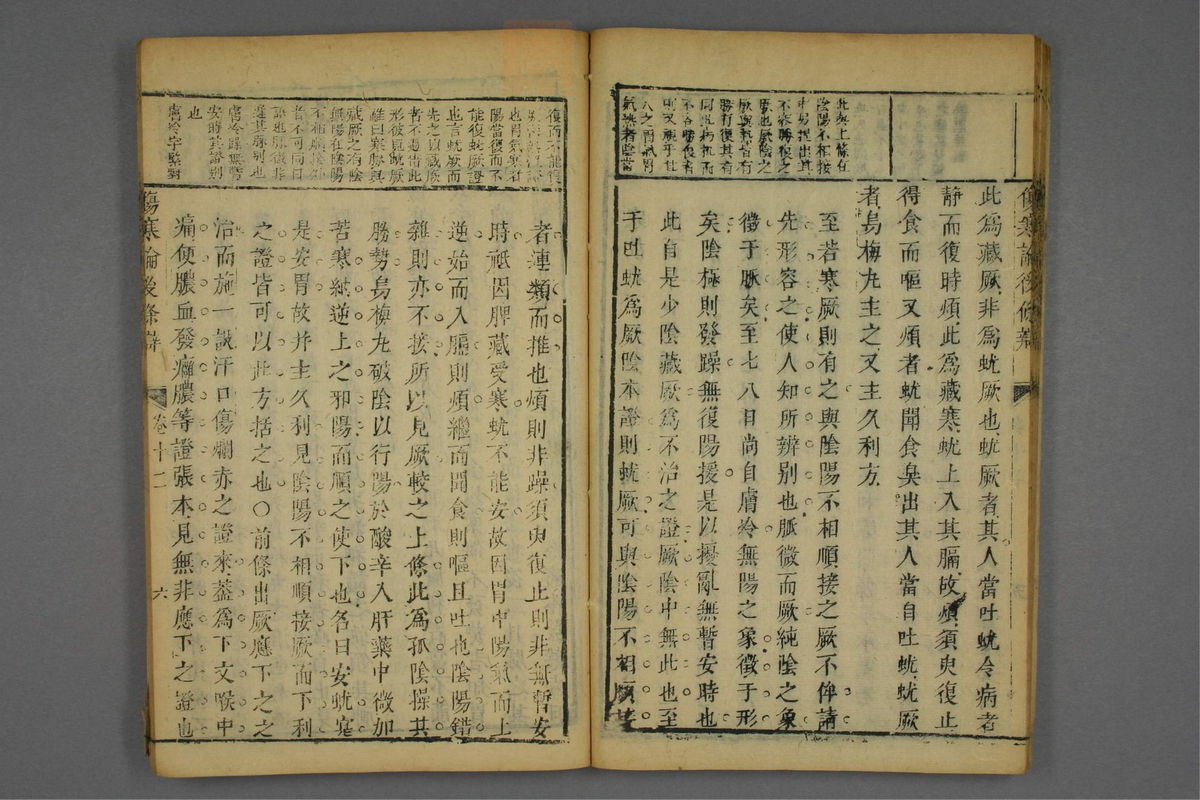 傷寒論後條辯
此爲藏厥非爲蚘厥也蚘厥者其人當吐蚘令病者
静而復時煩此爲藏寒蚘上入其膈故煩須臾復止
得食而嘔又煩者蚘聞食臭出其人當自吐蚘蚘厥
者烏梅丸主之又主久利方
至若寒厥則有之與陰陽不相順接之厥不侔請
先形容之使人知所辨别也脈微而厥純陰之象
徵于脈矣至七八日尚自膚冷無陽之象徵于形
矣陰極則發躁無復陽援是以擾亂無暫安時也
此自是少陰藏厥爲不治之證厥陰中無此也至
于吐蚘爲厥陰本證則蚘厥可與陰陽不相順接
此與上條在
陰陽不相接
中易提出其
不容勝復之
厥也厥陰之
厥與熱皆有
勝有復其有
同此病机而
不容勝復者
則又視乎其
人之胃氣胃
氣熱者當
者連類而推也煩則非躁須臾復止則非無暫安
時祗因脾藏受寒蚘不能安故因胃中陽氣而上
逆始而入膈則煩繼而聞食則嘔且吐也陰陽錯
雜則亦不接所以見厥較之上條此爲孤陰操其
勝勢烏梅丸破陰以行陽於酸辛入肝藥中微加
苦寒純逆上之邪陽而順之使下也名曰安蚘寔
是安胃故并主久利見陰陽不相順接厥而下利
之證皆可以此方括之也○前條出厥應下之之
治而施一誤汗口傷爛赤之證來葢爲下文喉中
痛便膿血發癰膿等證張本見無非應下之證也
復而不能復
也胃氣寒者
陽當復而不
能復蚘厥證
也言蚘厥而
先之以藏厥
者不過借此
形彼見蚘厥
雖曰寒勝與
藏厥之有陰
無陽在陰陽
不相順接外
者不可同日
語也脈微非
遲其辭别也
膚冷躁無暫
安時其證别
也
膚冷字緊對
傷寒論後條辯
卷十二
六